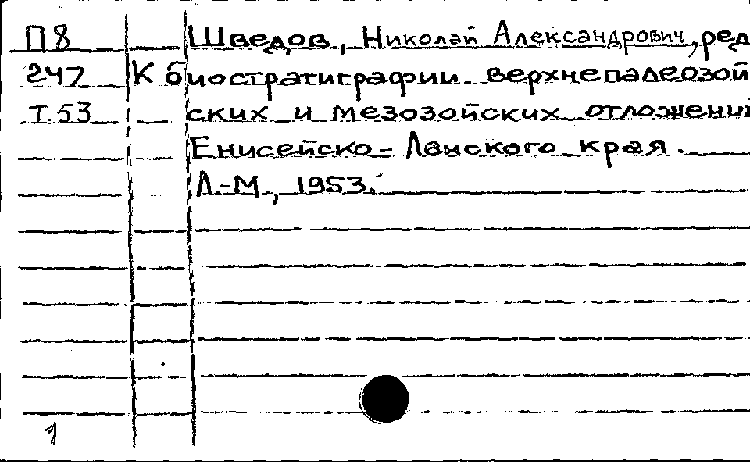 П8 Шведов, Николай Александрович, ред
247 К биостратиграфии верхнепалеозой
Т.53 ских и мезозойских отложений
Енисейско-Ленского края.
Л.-М., 1953.
1